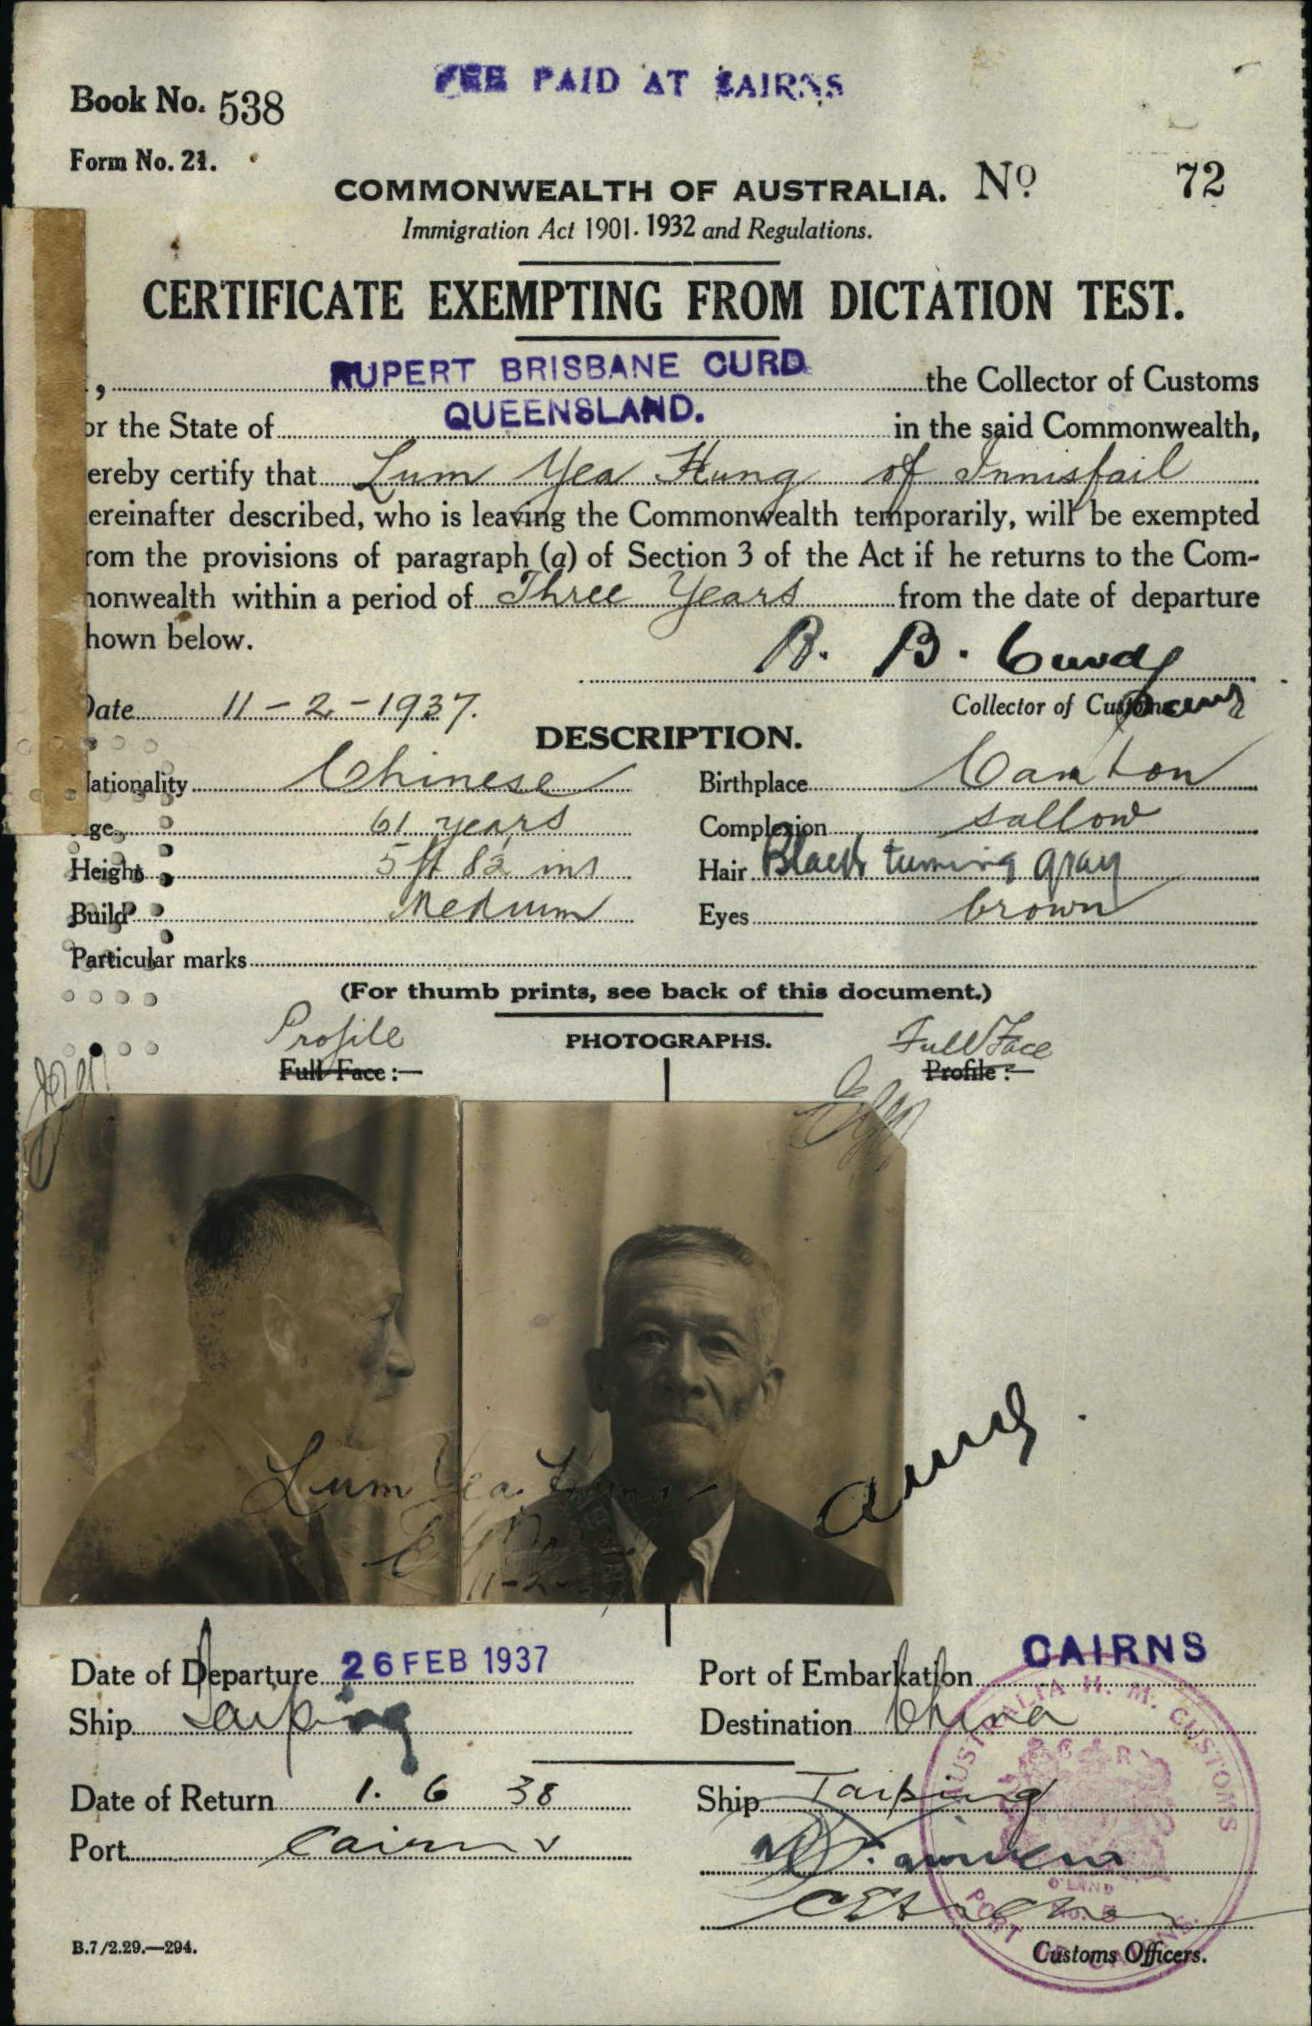 FEE PAID AT CAIRNS
Book No. 538
Form No. 21.
COMMONWEALTH OF AUSTRALIA. No 72
Immigration Act 1901-1932 and Regulations.
CERTIFICATE EXEMPTING FROM DICTATION TEST.
, RUPERT BRISBANE CURD the Collector of Customs
or the State of QUEENSLAND. in the said Commonwealth,
ereby certify that Lum Yea Hung of Innisfail
ereinafter described, who is leaving the Commonwealth temporarily, will be exempted
rom the provisions of paragraph (a) of Section 3 of the Act if he returns to the Com-
monwealth within a period of Three Years from the date of departure
hown below.
R. B. Curd
Date 11-2-1937.
Collector of Customs
DESCRIPTION.
Nationality Chinese Birthplace Canton
Age 61 years Complexion sallow
Height 5 ft 8½ ins Hair Black turning gray
Build Medium Eyes brown
Particular marks
(For thumb prints, see back of this document.)
Profile PHOTOGRAPHS. Full Face
Full Face:— Profile:—
Lum Yea Hung
11-2-
Date of Departure 26 FEB 1937 Port of Embarkation CAIRNS
Ship Taiping Destination China
Date of Return 1. 6 38 Ship Taiping
Port Cairns
AUSTRALIA H. M. CUSTOMS
G R
Q'LAND
No. 5
PORT CAIRNS
B.7/2.29.—294.
Customs Officers.